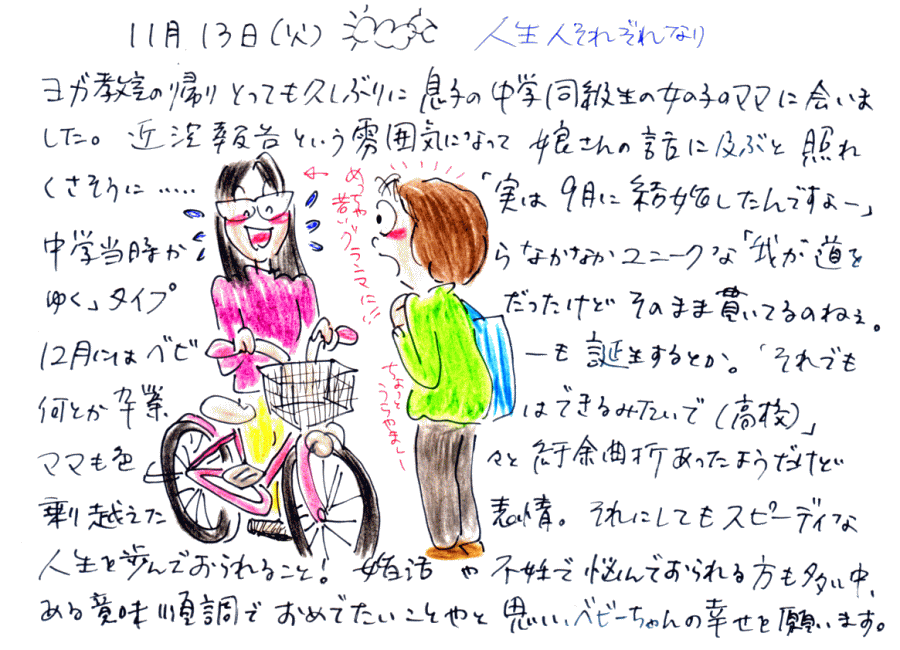 11月13日(火) 人生人それぞれなり
ヨガ教室の帰り とっても久しぶりに 息子の中学同級生の女の子のママに会いま
した。近況報告という雰囲気になって 娘さんの話に及ぶと 照れ
くさそうに…… 「実は9月に結婚したんですよー」
中学当時か らなかなかユニークな「我が道を
ゆく」タイプ だったけど そのまま貫いてるのねぇ。
12月にはベビ ーも誕生するとか。「それでも
何とか卒業 はできるみたいで(高校)」
ママも色 々と紆余曲折あったようだけど
乗り越えた 表情。それにしてもスピーディな
人生を歩んでおられること! 婚活や不妊で悩んでおられる方も多い中、
ある意味順調でおめでたいことやと思い、ベビーちゃんの幸せを願います。
めっちゃ
若いグランマに!!
ちょっと
うらやましー